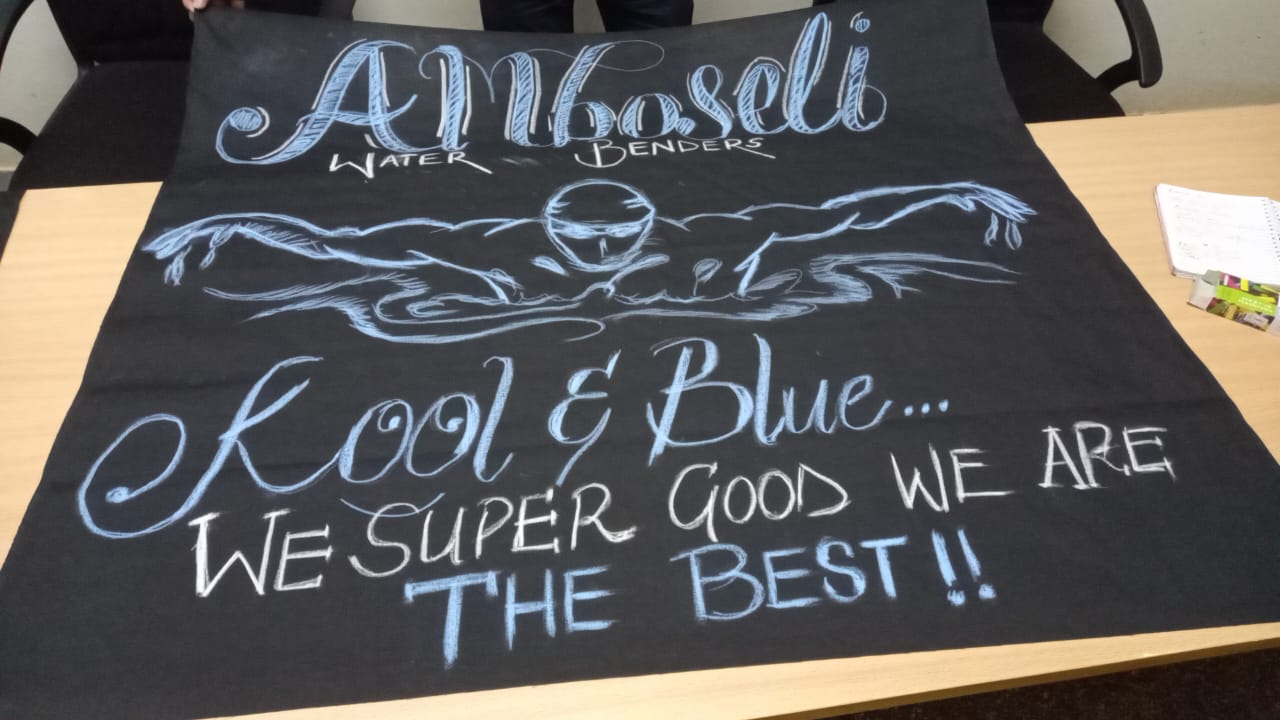 AMboseli
WATER BENDERS
Kool & Blue...
WE SUPER GOOD WE ARE
THE BEST!!